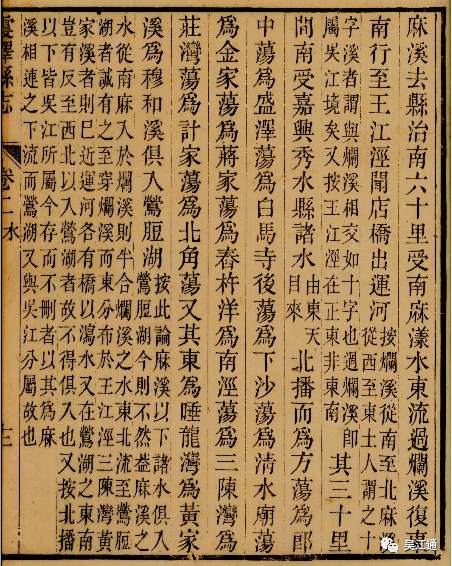 麻溪去縣治南六十里受南麻漾水東流過爛溪復東
南行至王江涇聞店橋出運河
按爛溪從南至北麻溪
從西至東土人謂之十
字溪者謂與爛溪相交如十字也過爛溪卽
屬吳江境矣又按王江涇在正東非東南
其三十里
間南受嘉興秀水縣諸水
由東天
目來
北播而爲方蕩爲郎
中蕩爲盛澤蕩爲白馬寺後蕩爲下沙蕩爲清水廟蕩
爲金家蕩爲蔣家蕩爲舂杵洋爲南涇蕩爲三陳灣爲
莊灣蕩爲計家蕩爲北角蕩又其東爲睡龍灣爲黃家
溪爲穆和溪俱入鶯脰湖
按此論麻溪以下諸水俱入
鶯脰湖今則不然蓋麻溪之
水從南麻入於爛溪則半合爛溪之水東北流至鶯脰
湖者誠有之至穿爛溪而東分布於王江涇三陳灣黃
家溪者則巳近運河各有橋以瀉水又在鶯湖之東南
豈有反至西北以入鶯湖者故不得俱入也又按北播
以下皆吳江所屬今存而不刪者以其爲麻
溪相連之下流而鶯湖又與吳江分屬故也
震澤縣志
卷二
水
三
吴江通